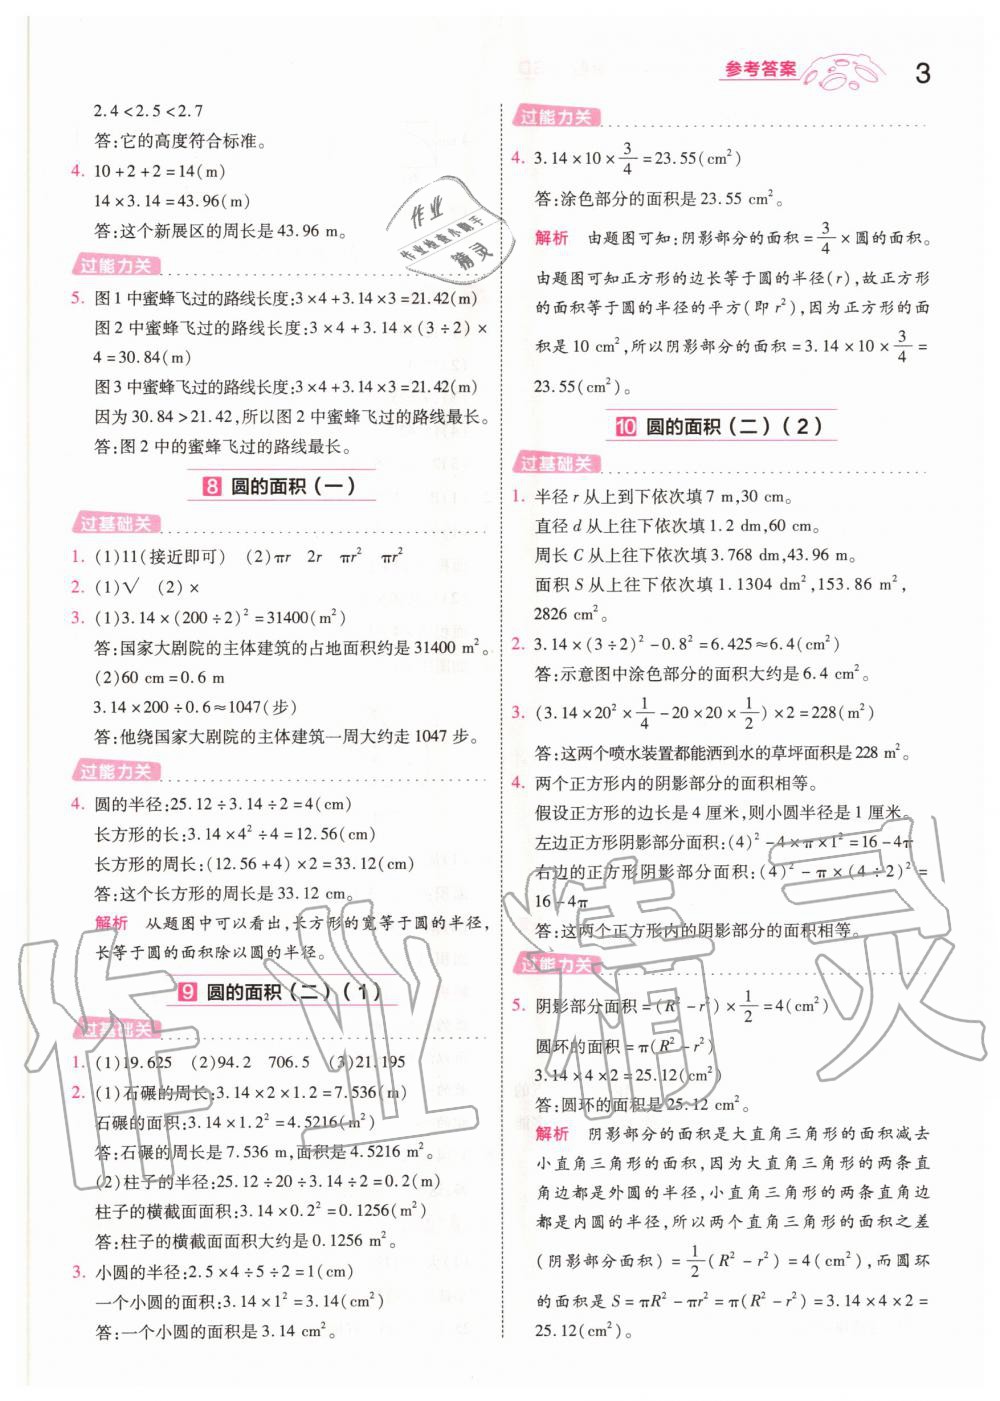 参考答案 3
2.4<2.5<2.7
答:它的高度符合标准。
4. 10+2+2=14(m)
14×3.14=43.96(m)
答:这个新展区的周长是 43.96 m。
过能力关
5. 图 1 中蜜蜂飞过的路线长度:3×4+3.14×3=21.42(m)
图 2 中蜜蜂飞过的路线长度:3×4+3.14×(3÷2)×
4=30.84(m)
图 3 中蜜蜂飞过的路线长度:3×4+3.14×3=21.42(m)
因为 30.84>21.42,所以图 2 中蜜蜂飞过的路线最长。
答:图 2 中的蜜蜂飞过的路线最长。
8 圆的面积(一)
过基础关
1. (1)11(接近即可) (2)πr 2r πr² πr²
2. (1)√ (2)×
3. (1)3.14×(200÷2)²=31400(m²)
答:国家大剧院的主体建筑的占地面积约是 31400 m²。
(2)60 cm=0.6 m
3.14×200÷0.6≈1047(步)
答:他绕国家大剧院的主体建筑一周大约走 1047 步。
过能力关
4. 圆的半径:25.12÷3.14÷2=4(cm)
长方形的长:3.14×4²÷4=12.56(cm)
长方形的周长:(12.56+4)×2=33.12(cm)
答:这个长方形的周长是 33.12 cm。
解析 从题图中可以看出,长方形的宽等于圆的半径,
长等于圆的面积除以圆的半径。
9 圆的面积(二)(1)
过基础关
1. (1)19.625 (2)94.2 706.5 (3)21.195
2. (1)石碾的周长:3.14×2×1.2=7.536(m)
石碾的面积:3.14×1.2²=4.5216(m²)
答:石碾的周长是 7.536 m,面积是 4.5216 m²。
(2)柱子的半径:25.12÷20÷3.14÷2=0.2(m)
柱子的横截面面积:3.14×0.2²=0.1256(m²)
答:柱子的横截面面积大约是 0.1256 m²。
3. 小圆的半径:2.5×4÷5÷2=1(cm)
一个小圆的面积:3.14×1²=3.14(cm²)
答:一个小圆的面积是 3.14 cm²。
过能力关
4. 3.14×10×3/4=23.55(cm²)
答:涂色部分的面积是 23.55 cm²。
解析 由题图可知:阴影部分的面积=3/4×圆的面积。
由题图可知正方形的边长等于圆的半径(r),故正方形
的面积等于圆的半径的平方(即 r²),因为正方形的面
积是 10 cm²,所以阴影部分的面积=3.14×10×3/4=
23.55(cm²)。
10 圆的面积(二)(2)
过基础关
1. 半径 r 从上到下依次填 7 m,30 cm。
直径 d 从上往下依次填 1.2 dm,60 cm。
周长 C 从上往下依次填 3.768 dm,43.96 m。
面积 S 从上往下依次填 1.1304 dm²,153.86 m²,
2826 cm²。
2. 3.14×(3÷2)²-0.8²=6.425≈6.4(cm²)
答:示意图中涂色部分的面积大约是 6.4 cm²。
3. (3.14×20²×1/4-20×20×1/2)×2=228(m²)
答:这两个喷水装置都能洒到水的草坪面积是 228 m²。
4. 两个正方形内的阴影部分的面积相等。
假设正方形的边长是 4 厘米,则小圆半径是 1 厘米。
左边正方形阴影部分面积:(4)²-4×π×1²=16-4π
右边的正方形阴影部分面积:(4)²-π×(4÷2)²=
16-4π
答:这两个正方形内的阴影部分的面积相等。
过能力关
5. 阴影部分面积=(R²-r²)×1/2=4(cm²)
圆环的面积=π(R²-r²)
3.14×4×2=25.12(cm²)
答:圆环的面积是 25.12 cm²。
解析 阴影部分的面积是大直角三角形的面积减去
小直角三角形的面积,因为大直角三角形的两条直
角边都是外圆的半径,小直角三角形的两条直角边
都是内圆的半径,所以两个直角三角形的面积之差
(阴影部分面积)=1/2(R²-r²)=4(cm²),而圆环
的面积是 S=πR²-πr²=π(R²-r²)=3.14×4×2=
25.12(cm²)。
作业
作业检查小助手
精灵
作业精灵